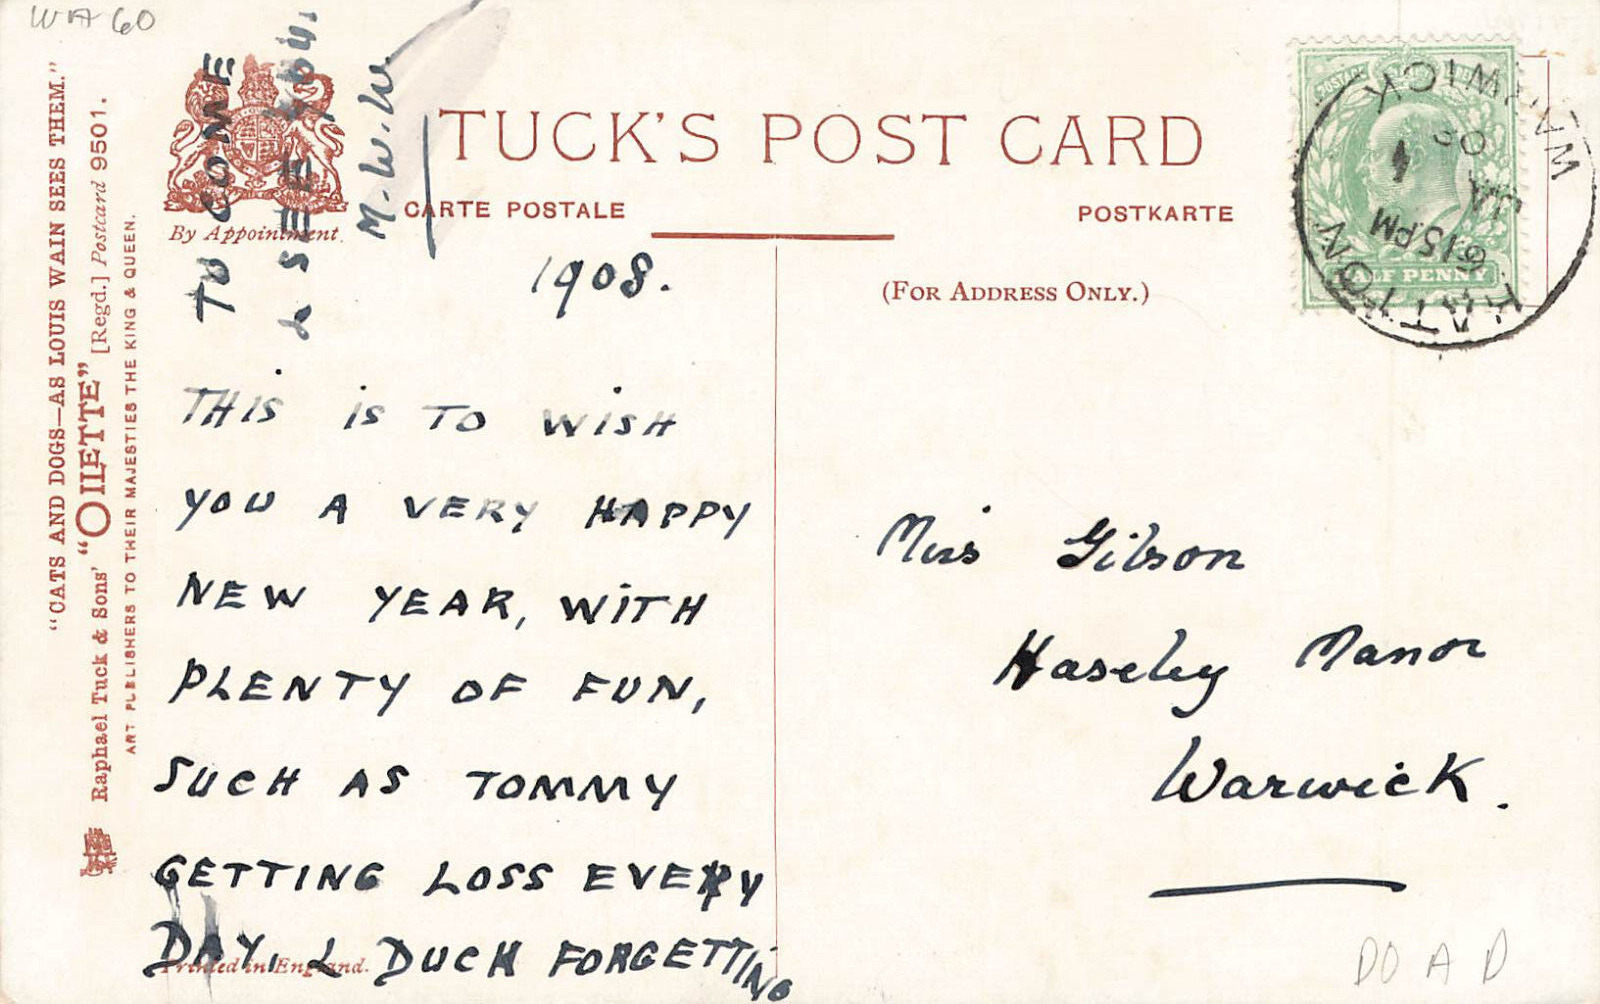 WA 60
"CATS AND DOGS—AS LOUIS WAIN SEES THEM."
Raphael Tuck & Sons' "OILETTE" [Regd.] Postcard 9501.
ART PUBLISHERS TO THEIR MAJESTIES THE KING & QUEEN.
By Appointment.
TUCK'S POST CARD
CARTE POSTALE
POSTKARTE
(FOR ADDRESS ONLY.)
1908.
THIS IS TO WISH
YOU A VERY HAPPY
NEW YEAR, WITH
PLENTY OF FUN,
SUCH AS TOMMY
GETTING LOSS EVERY
DAY, & DUCH FORGETTING
TO COME
& SEE YOU.
M.W.W.
Printed in England.
Miss Gibson
Haseley Manor
Warwick.
HALF PENNY
HATTON
WARWICK
6 15 PM
JA 1
08
DOAD